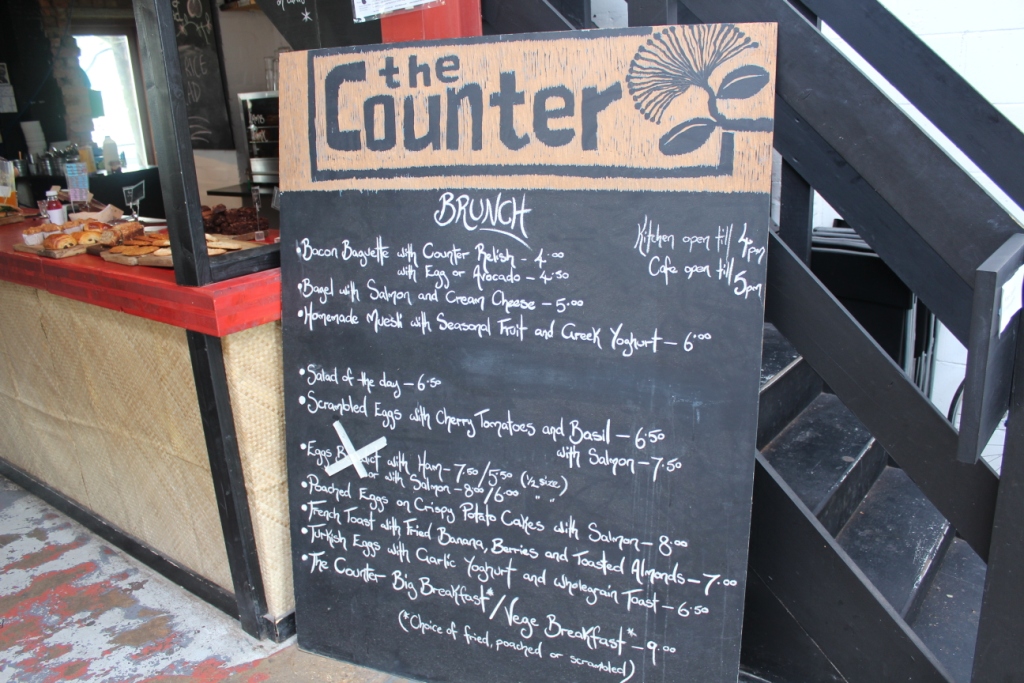 the
Counter
BRUNCH
Kitchen open till 4pm
Cafe open till 5pm
• Bacon Baguette with Counter Relish - 4.00
with Egg or Avocado - 4.50
• Bagel with Salmon and Cream Cheese - 5.00
• Homemade Muesli with Seasonal Fruit and Greek Yoghurt - 6.00
• Salad of the day - 6.50
• Scrambled Eggs with Cherry Tomatoes and Basil - 6.50
with Salmon - 7.50
• Eggs with Ham - 7.50/5.50 (½ size)
or with Salmon - 8.00/6.00 " "
• Poached Eggs on Crispy Potato Cakes with Salmon - 8.00
• French Toast with Fried Banana, Berries and Toasted Almonds - 7.00
• Turkish Eggs with Garlic Yoghurt and Wholegrain Toast - 6.50
• The Counter Big Breakfast*/Vege Breakfast* - 9.00
(*Choice of fried, poached or scrambled)